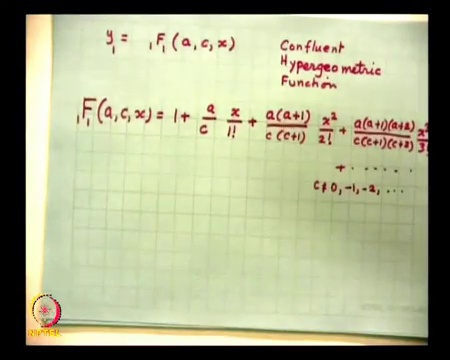 y₁ = ₁F₁ (a, c, x)
Confluent
Hypergeometric
Function
₁F₁(a,c,x) = 1 + a/c x/1! + a(a+1)/c(c+1) x²/2! + a(a+1)(a+2)/c(c+1)(c+2) x³/3!
+ ......
c ≠ 0, -1, -2, ...
NPTEL